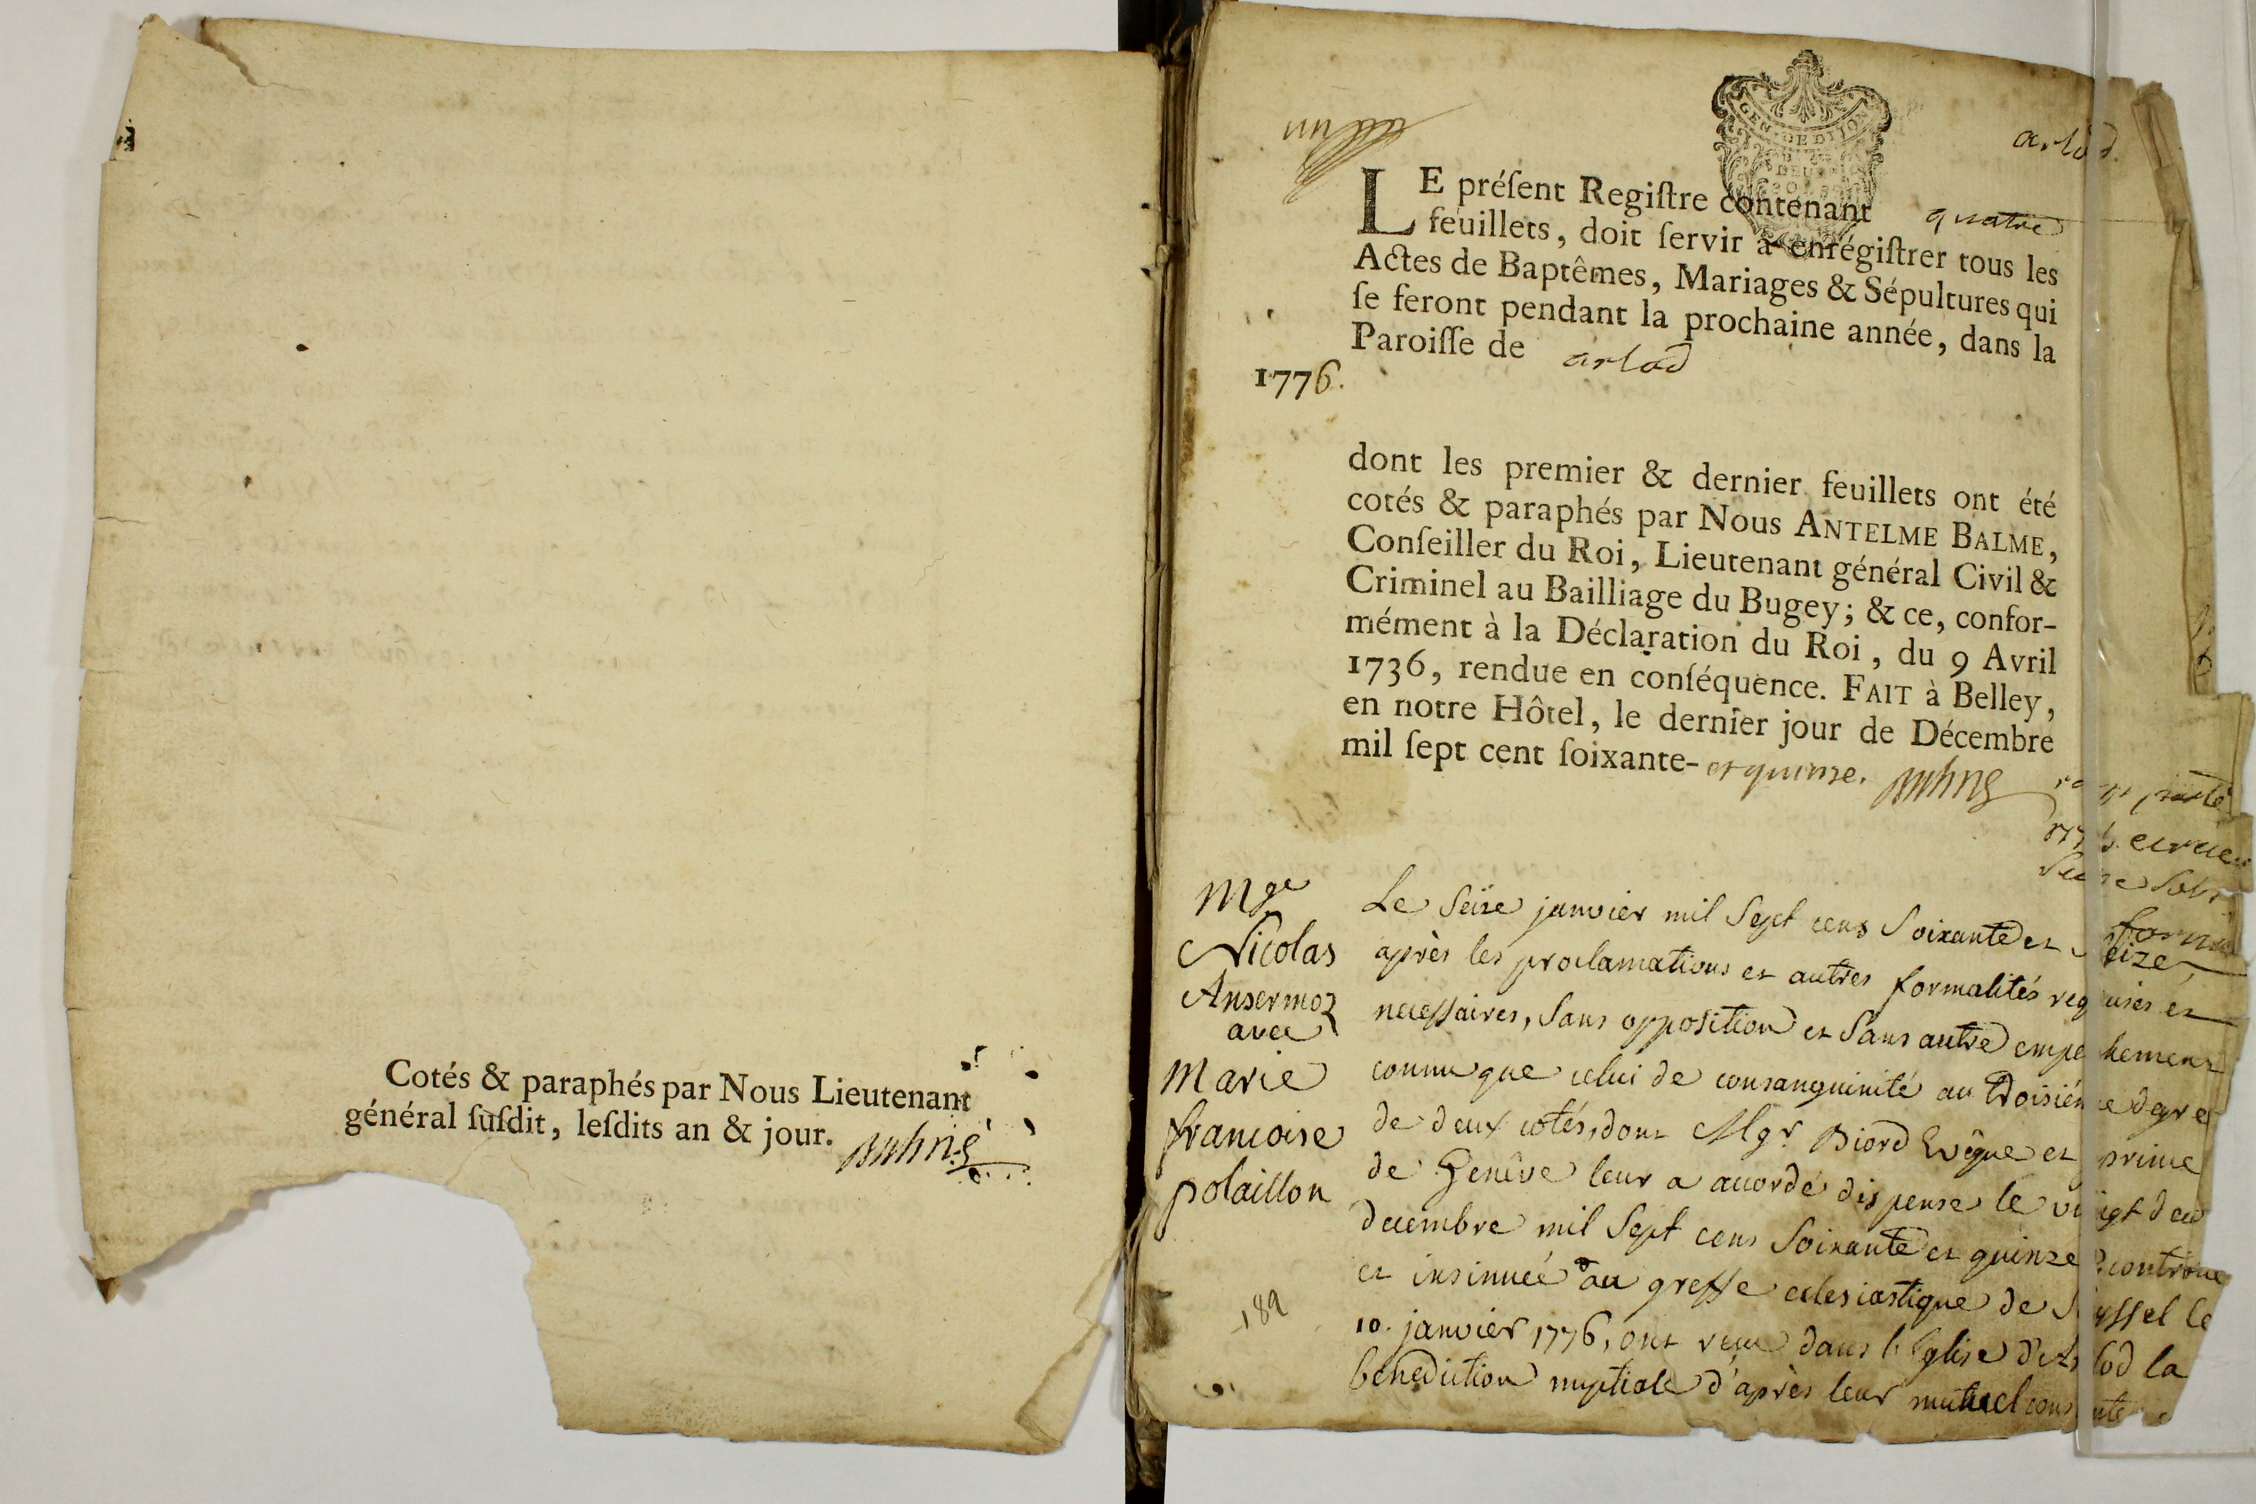 Cotés & paraphés par Nous Lieutenant
général ſuſdit, leſdits an & jour.
un
GEN. DE DIJON
DEUX
arlod.
LE préſent Regiſtre contenant quatre
feuillets, doit ſervir à enrégiſtrer tous les
Actes de Baptêmes, Mariages & Sépultures qui
ſe feront pendant la prochaine année, dans la
Paroiſſe de arlod
1776.
dont les premier & dernier feuillets ont été
cotés & paraphés par Nous ANTELME BALME,
Conſeiller du Roi, Lieutenant général Civil &
Criminel au Bailliage du Bugey; & ce, confor-
mément à la Déclaration du Roi, du 9 Avril
1736, rendue en conſéquence. FAIT à Belley,
en notre Hôtel, le dernier jour de Décembre
mil ſept cent ſoixante-et quinze.
Mge
Nicolas
Ansermoz
avec
Marie
francoise
polaillon
Le Seize janvier mil Sept cens Soixante et Seize,
après les proclamations et autres formalités requises et
necessaires, Sans opposition et Sans autre empechement
connu que celui de consanguinité au troisiéme degre
de deux cotés, dont Mgr. Biord Evêque et prince
de Genêve leur a accordé dispense le vingt deux
decembre mil Sept cens Soixante et quinze controlée
et insinuée au greffe eclesiastique de Seyssel le
10. janvier 1776, ont recu dans l'Eglise d'Arlod la
benediction nuptiale d'après leur mutuel consente
189